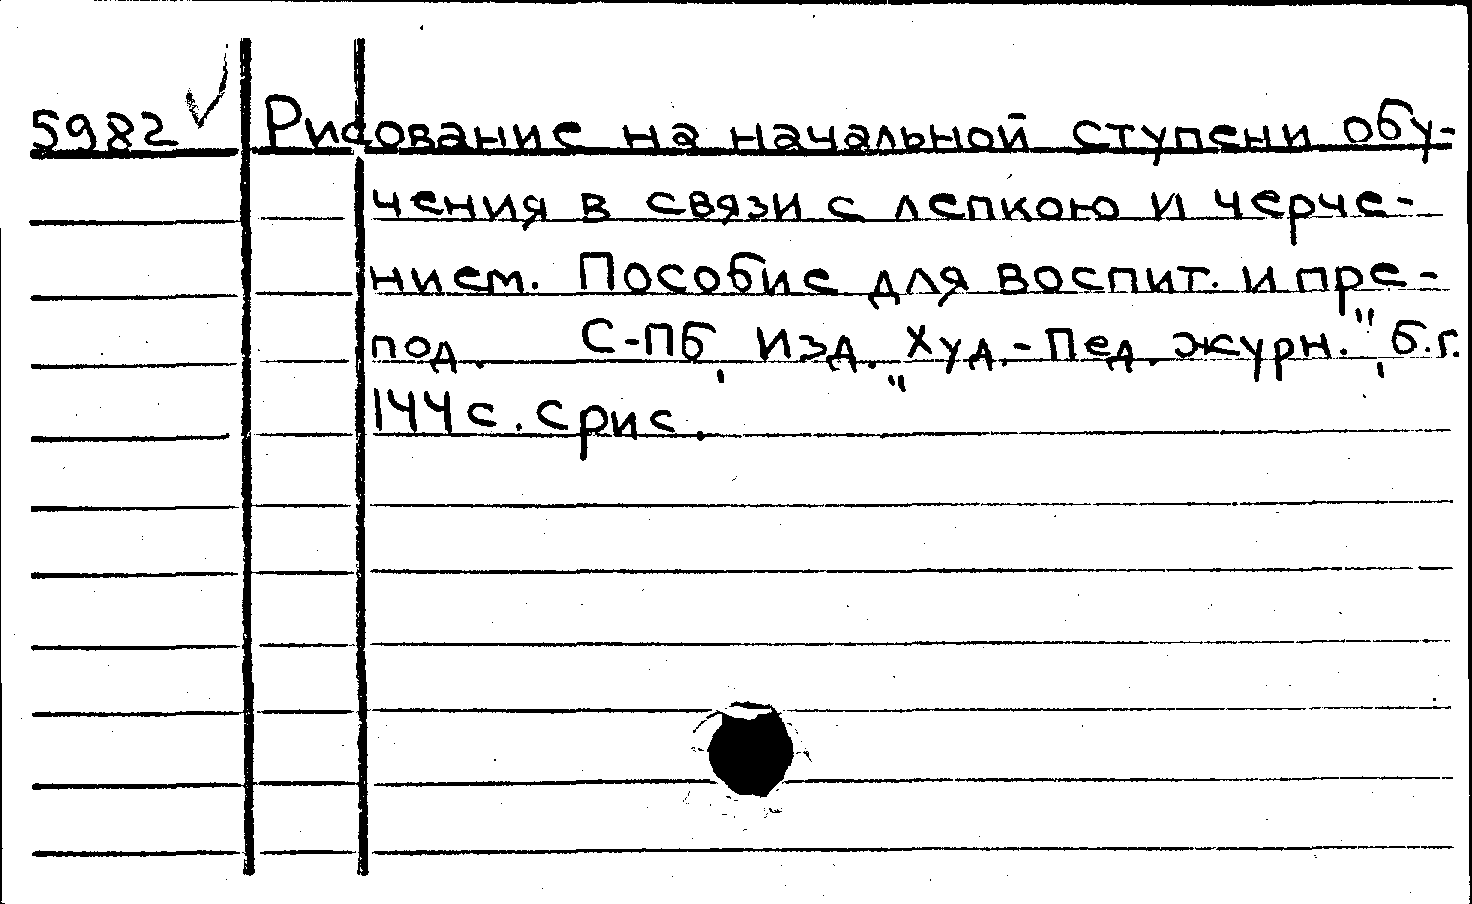 5982 Рисование на начальной ступени обу-
чения в связи с лепкою и черче-
нием. Пособие для воспит. и пре-
под. С-ПБ, Изд. „Худ.-Пед. журн.", б.г.
144 с. с рис.